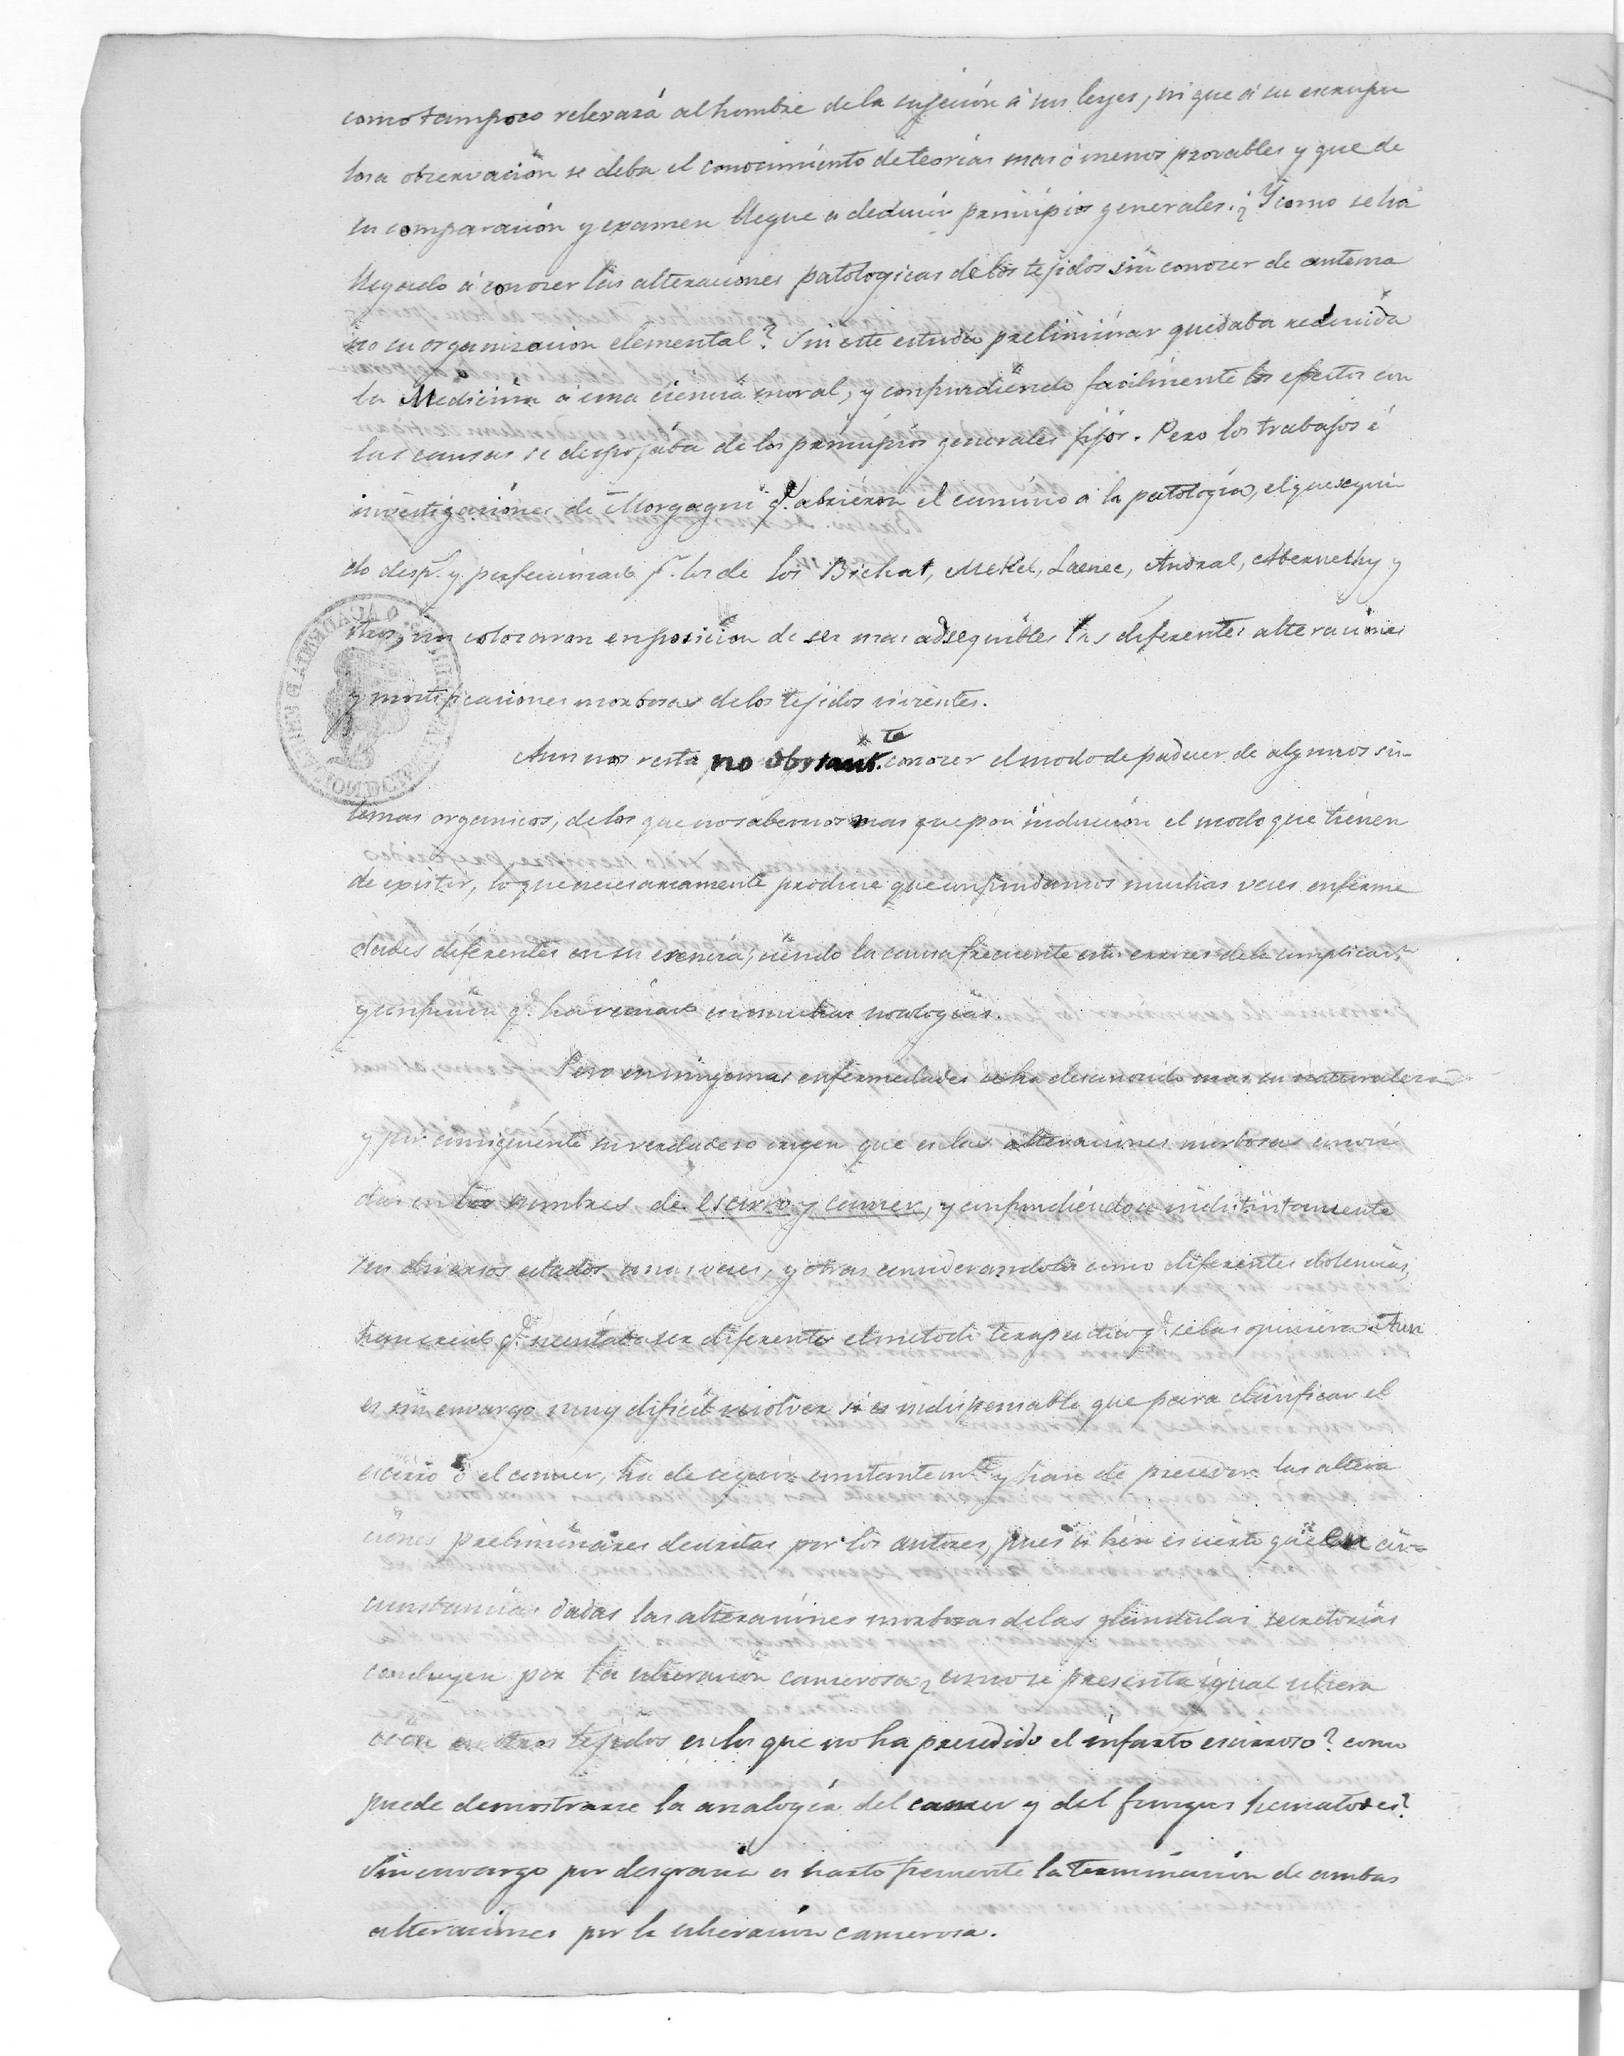 como tampoco relevará al hombre de la sujeción á sus leyes, ni que á su escrupu
losa observación se deba el conocimiento de teorías mas ó menos provables y que de
su comparación y examen llegue a deducir principios generales. ¿Y como se ha
llegado á conocer las alteraciones patologicas de los tejidos sin conocer de antema
no su organización elemental? Sin este estudio preliminar quedaba reducida
la Medicina á una ciencia moral, y confundiendo facilmente los efectos con
las causas se despojaba de los principios generales fijos. Pero los trabajos é
investigaciones de Morgagni q.e abrieron el camino a la patologia, el que segui
do desp.s y perfeccionado p.r los de los Bichat, Mekel, Laenec, Andral, Abernethy y
otros, nos colocaron en posicion de ser mas adsequibles las diferentes alteraciones
y modificaciones morbosas de los tejidos vivientes.
Aun nos resta no obstante conocer el modo de padecer de algunos sis-
temas organicos, de los que no sabemos mas que por inducción el modo que tienen
de existir, lo que necesariamente produce que confundamos muchas veces enferme
dades diferentes en su esencia, siendo la causa frecuente estos errores de la complicac.n
y confusión q.e ha reinado en muchas nosologias.
Pero en ningunas enfermedades se ha desconocido mas su naturaleza
y por consiguiente su verdadero origen que en las alteraciones morbosas conoci
das con los nombres de escirro y cancer, y confundiendose indistintamente
sus diversos estados unas veces, y otras considerandolas como diferentes dolencias,
han creido q.e necesitaba ser diferente el metodo terapeutico q.e se las opusiera. Aun
es sin envargo muy dificil resolver si es indispensable que para clasificar el
escirro ó el cancer, ha de seguir constantem.te y han de preceder las altera
ciones preliminares descritas por los autores, pues si bien es cierto que en cir-
cunstancias dadas las alteraciones morbosas de las glandulas secretorias
concluyen por la ulceracion cancerosa ¿como se presenta igual ulcera
ción en otros tejidos en los que no ha precedido el infarto escirroso? como
puede demostrarse la analogía del cancer y del fungus hematodes?
Sin envargo por desgracia es harto frecuente la terminación de ambas
alteraciones por la ulceración cancerosa.